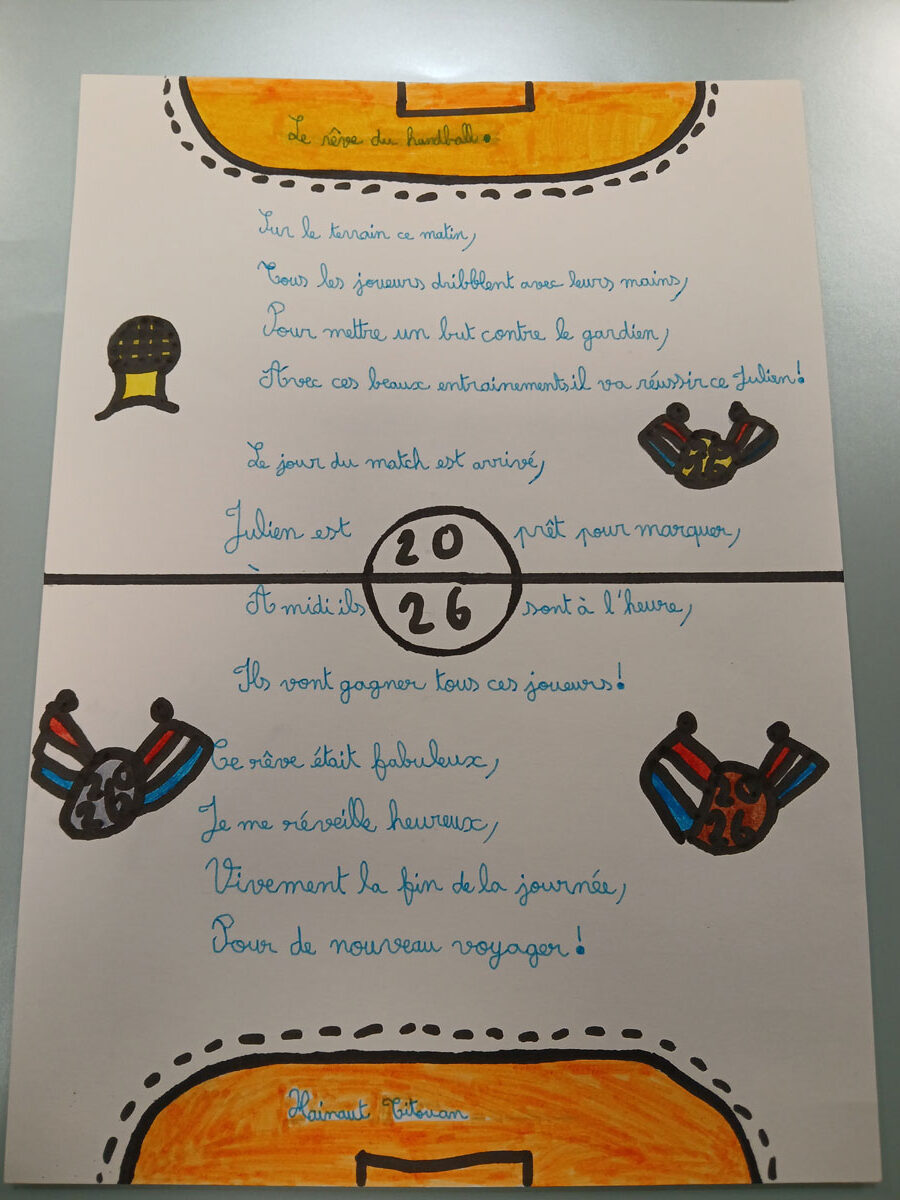 Le rêve du handball.
Sur le terrain ce matin,
Tous les joueurs dribblent avec leurs mains,
Pour mettre un but contre le gardien,
Avec ces beaux entrainements il va réussir ce Julien!
26
Le jour du match est arrivé,
Julien est 20 prêt pour marquer,
À midi ils 26 sont à l'heure,
Ils vont gagner tous ces joueurs!
20
26
20
26
Ce rêve était fabuleux,
Je me réveille heureux,
Vivement la fin de la journée,
Pour de nouveau voyager!
Hainaut Titouan